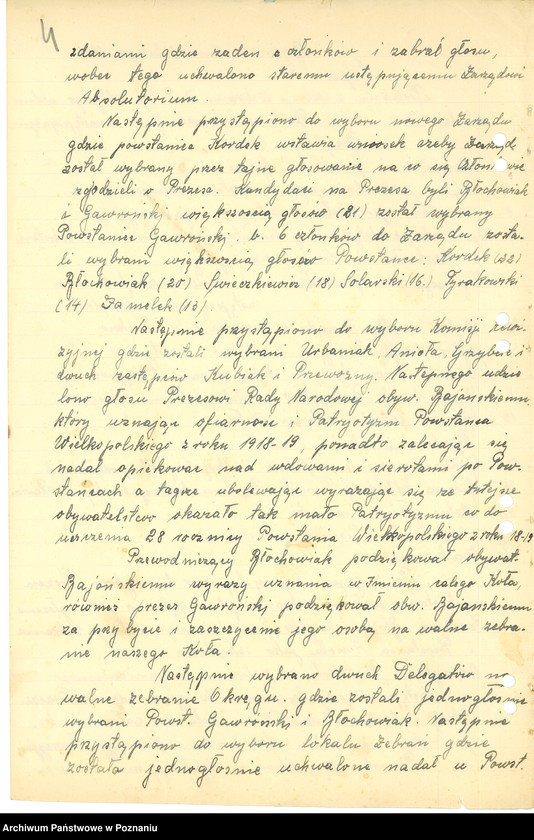 4
zdaniami gdzie zaden z członków i zabrał głosu,
wobec tego uchwalono staremu ustępującemu Zarządowi
Absolutorium.
Następnie przystąpiono do wyboru nowego Zarządu
gdzie powstaniec Kordek wstawia wniosek azeby Zarząd
został wybrany przez tajne głosowanie na co się Członkowie
zgodzieli o Prezesa. Kandydaci na Prezesa byli Błochowiak
i Gawroński większoscią głosów (21) został wybrany
Powstaniec Gawroński. b. 6 członków do Zarządu zosta-
li wybrani większoscią głosów Powstance: Kordek (22)
Błochowiak (20) Swieczkiewicz (18) Solarski (16.) Tyrakowski
(14) Jamelek (13).
Następnie przystąpiono do wyboru Komisji rewi-
zyjnej gdzie zostali wybrani Urbaniak, Anioła, Grzybek i
dwuch zastępców Kubiak i Przewozny. Następnego udzie
lono głosu Prezesowi Rady Narodowej obyw. Bajańskiemu
który uznając ofiarnosc i Patryotyzm Powstanca
Wielkopolskiego z roku 1918-19, ponadto zalecając się
nadal opiekowac nad wdowami i sierotami po Pow-
stancach a tagze ubolewając wyrazając się ze tutejsze
obywatelstwo okazało tak mało Patryotyzmu co do
uczczenia 28 rocznicy Powstania Wielkopolskiego z roku 18-19
Przewodniczący Błochowiak podziękował obywat.
Bajańskiemu wyrazy uznania w Imieniu całego Koła,
równiez prezes Gawroński podziękował obw. Bajanskiemu
za przybycie i zaszczycenie jego osobą na walne zebra-
nie naszego Koła.
Następnie wybrano dwuch Delegatów na
walne zebranie Okręgu. gdzie zostali jednogłośnie
wybrani Powst. Gawroński i Błochowiak. Następnie
przystąpiono do wyboru lokalu Zebrań gdzie
została jednogłośnie uchwalone nadał u Powst.
Archiwum Państwowe w Poznaniu